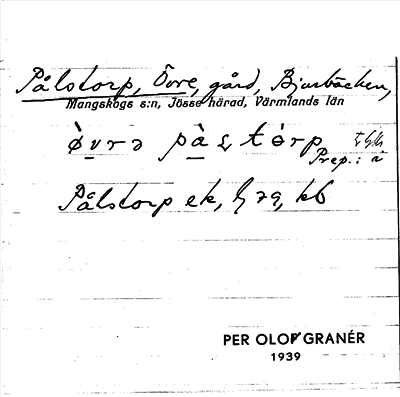 Pålstorp, Övre, gård, Bjurbäcken,
Mangskogs s:n, Jösse härad, Värmlands län
Prep.: å
Pålstorp ek, kb
PER OLOF GRANÉR
1939